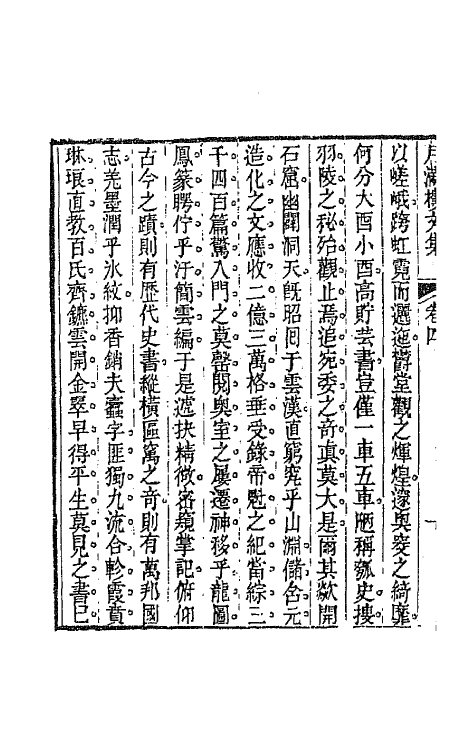 月滿樓文集 卷四
以嵯峨跨虹霓而邐迤欝堂觀之煇煌邃與窔之綺靡
何分大酉小酉高貯芸書豈僅一車五車陋稱瓠史搜
羽陵之秘殆觀止焉追宛委之奇眞莫大是爾其歘開
石窟幽闢洞天旣昭囘于雲漢直窮究乎山淵儲名元
造化之文應收二億三萬格垂受錄帝魁之紀當綜三
千四百篇驚入門之莫罄閱輿室之屢遷神移乎龍圖
鳳篆聘佇乎汗簡雲編于是遞抉精微密窺掌記俯仰
古今之蹟則有歴代史書縱橫區寓之奇則有萬邦國
志羌墨潤乎氷紋抑香銷夫蠧字匪獨九流合軫霞賁
琳琅直教百氏齊鑣雲開金翠早得平生莫見之書已